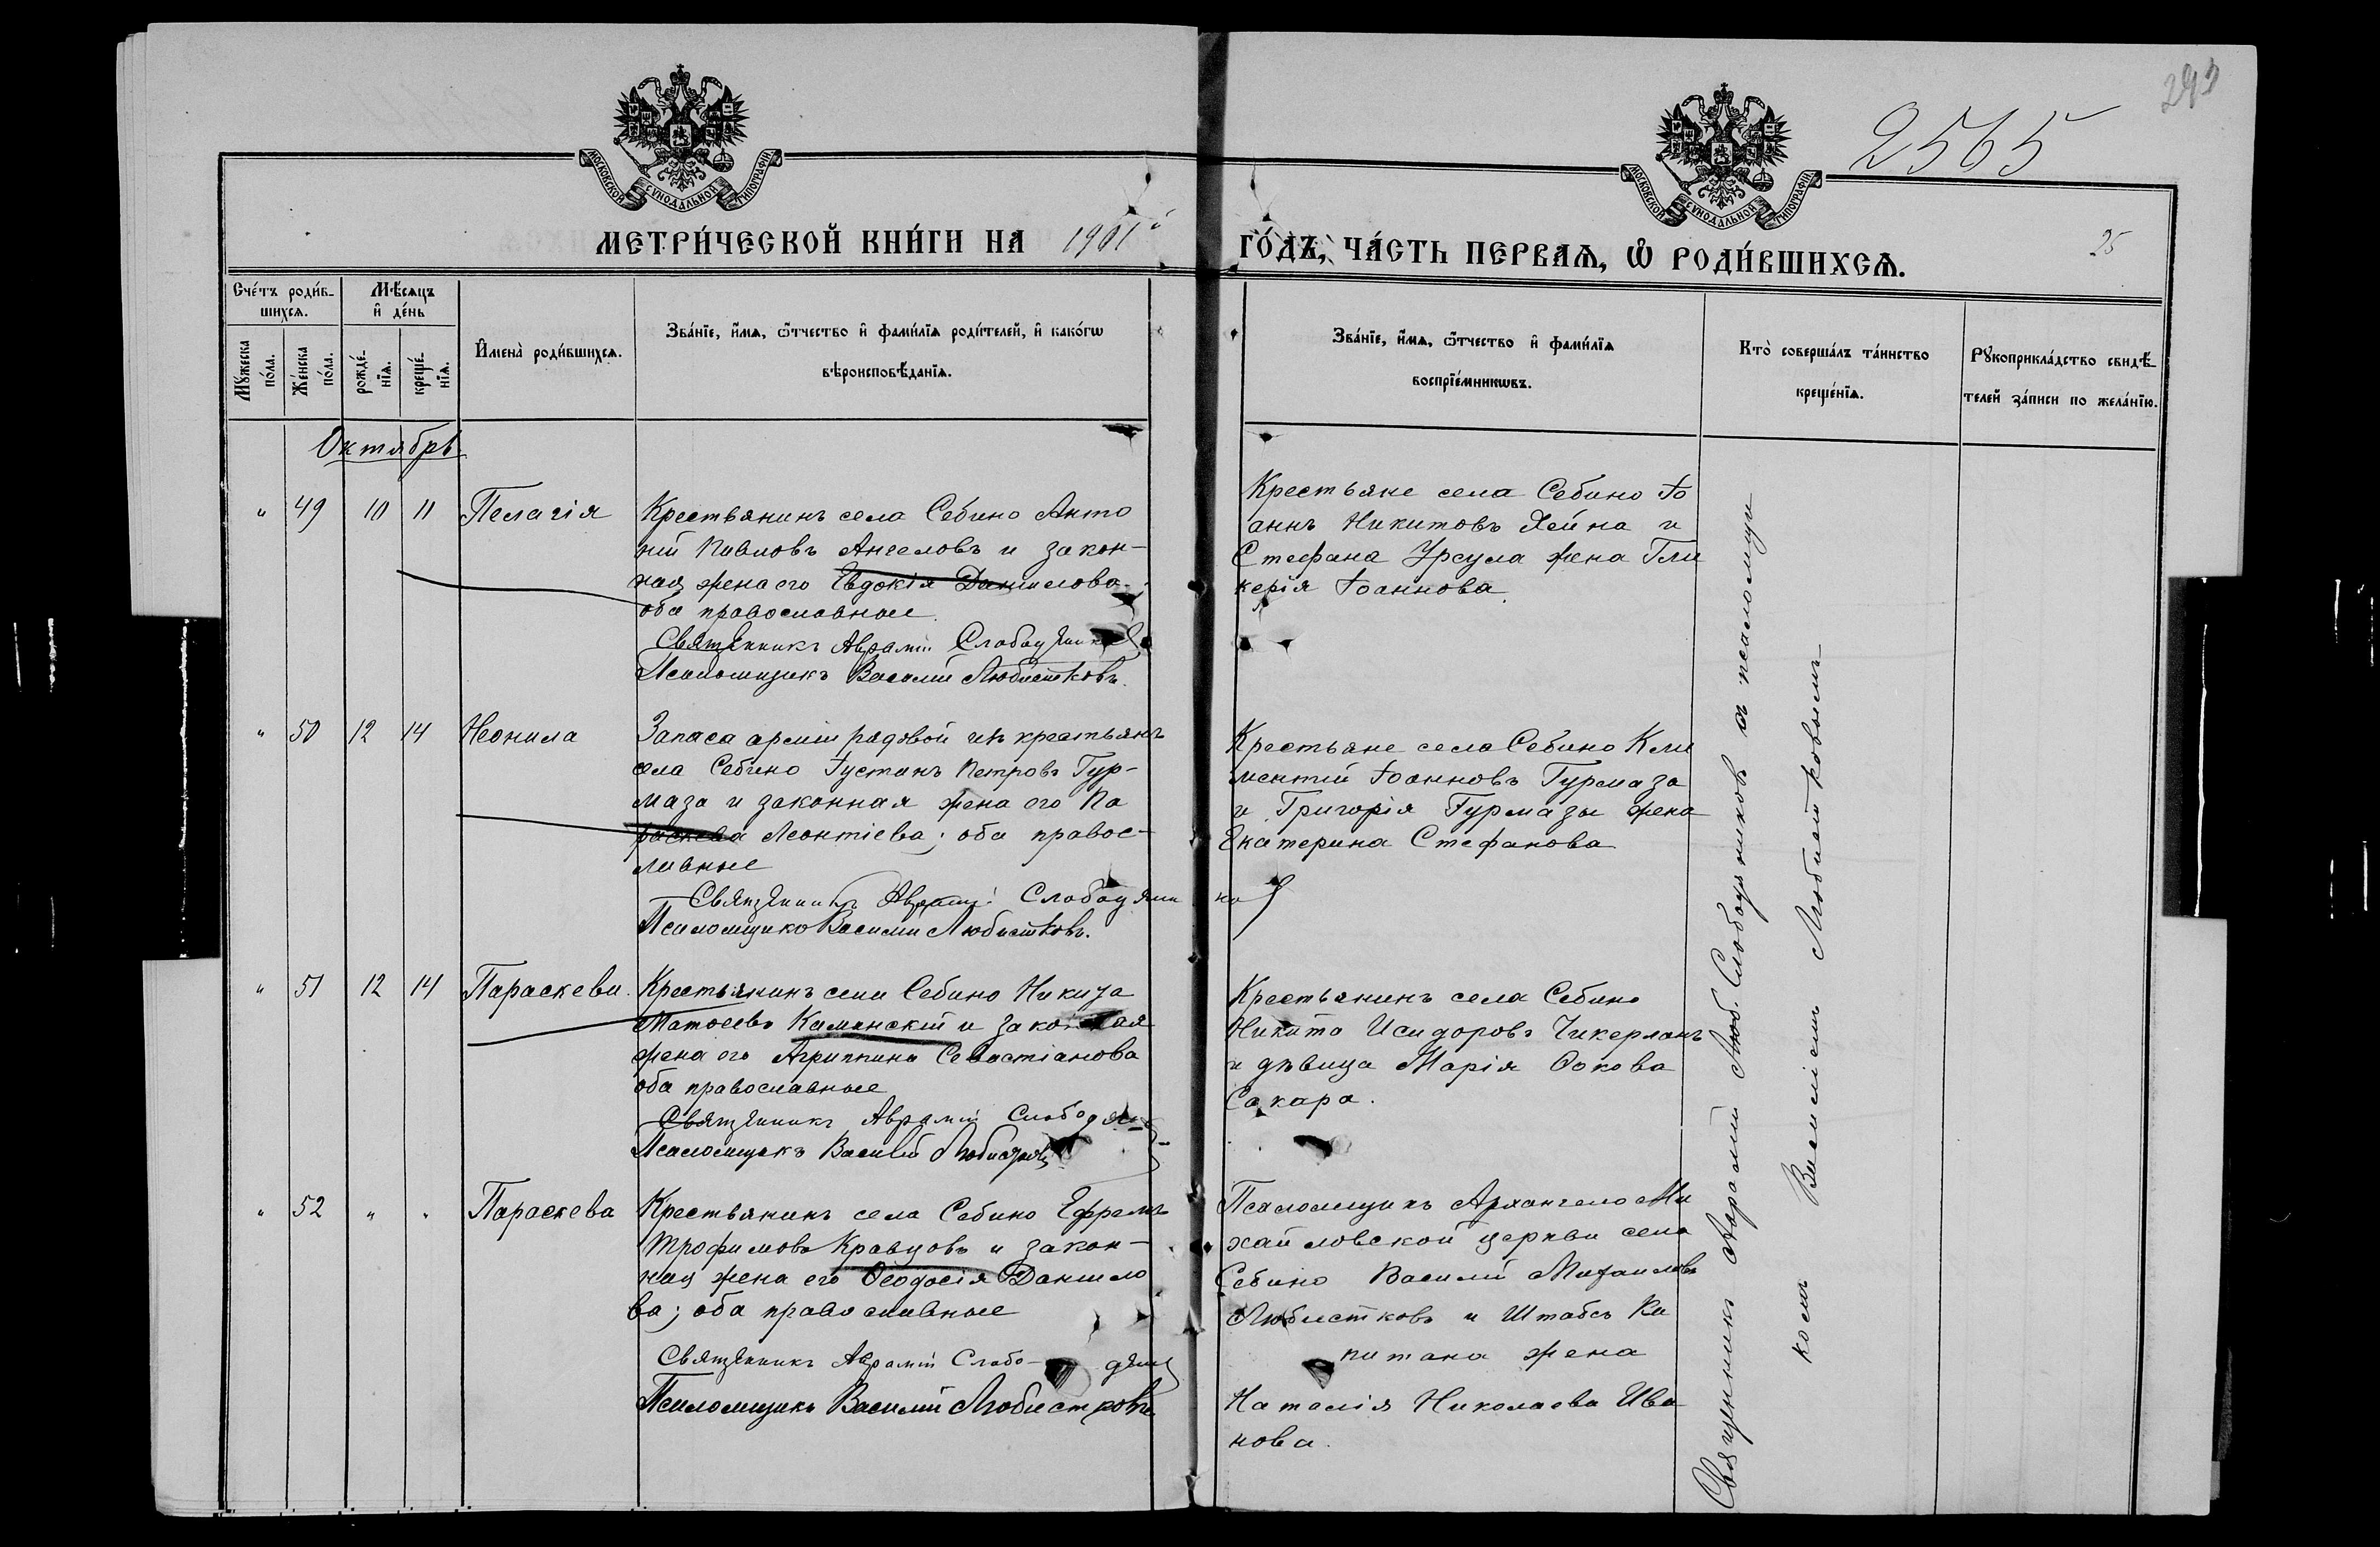 293
2565
25
МОСКОВСКОЙ СѴНОДАЛЬНОЙ ТИПОГРАФІИ.
МОСКОВСКОЙ СѴНОДАЛЬНОЙ ТИПОГРАФІИ.
МЕТРИ́ЧЕСКОЙ КНИ́ГИ НА 1901й ГО́ДЪ, ЧА́СТЬ ПЕРВАѦ, Ѡ҆ РОДИ́ВШИХСѦ.
Сче́тъ роди́в-
шихсѧ.
Мꙋжеска
по́ла.
Же́нска
по́ла.
Мѣ́сѧцъ
и҆ де́нь
рожде́-
нїѧ.
креще́-
нїѧ.
И҆мена̀ роди́вшихсѧ.
Зва́нїе, и҆́мѧ, ѻ҆́тчество и҆ фами́лїѧ роди́телей, и҆ како́гѡ
вѣроисповѣ́данїѧ.
Зва́нїе, и҆́мѧ, ѻ҆́тчество и҆ фами́лїѧ
воспрїе́мникѡвъ.
Кто̀ соверша́лъ та́инство
креще́нїѧ.
Рꙋкоприкла́дство свидѣ́-
телей за́писи по жела́нїю.
Октябрь
" 49 10 11 Пелагія
Крестьянинъ села Себино Анто
ній Павловъ Ангеловъ и закон-
ная жена его Евдокія Даниилова
оба православные.
Священникъ Аврамій
Псаломщикъ Василій Любистковъ.
Крестьяне села Себино Іо
аннъ Никитовъ и
Стефана Урсула жена Гли
керія Іоаннова.
" 50 12 14 Неонила
Запаса арміи рядовой изъ крестьянъ
села Себино Іустинъ Петровъ Гур-
маза и законная жена его Па
раскева Леонтіева; оба правос-
лавные
Священникъ Аврамій
Псаломщикъ Василій Любистковъ.
Крестьяне села Себино Кли
ментій Іоанновъ Гурмаза
и Григорія Гурмазы жена
Екатерина Стефанова
" 51 12 14 Параскева.
Крестьянинъ села Себино Никита
Матѳеевъ Каминскій и законная
жена его Агриппина Севастіанова
оба православные
Священникъ Аврамій
Псаломщикъ Василій Любистковъ
Крестьянинъ села Себино
Никита Исидоровъ Чикерланъ
и дѣвица Марія Фокова
Сакара.
" 52 " " Параскева
Крестьянинъ села Себино Ефремъ
Трофимовъ Кравцовъ и закон-
ная жена его Ѳеодосія Даниило
ва; оба православные
Священникъ Аврамій
Псаломщикъ Василій Любистковъ
Псаломщикъ Архангело Ми
хайловской церкви села
Себино Василій Михаиловъ
Любистковъ и Штабсъ Ка
питана жена
Наталія Николаева Ива
нова.
Священникъ Аврамій съ псаломщи
комъ Василіемъ Любистковымъ